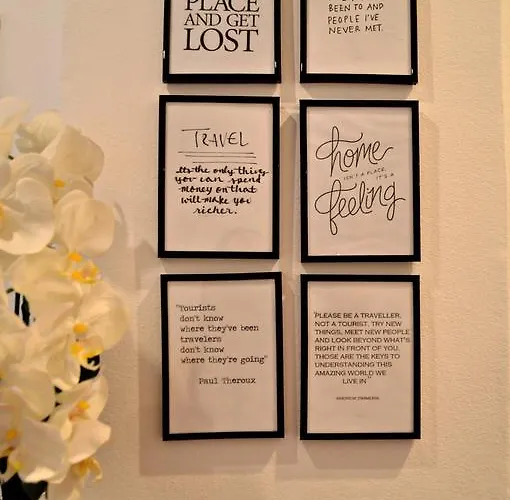 PLACE
AND GET
LOST
BEEN TO AND
PEOPLE I'VE
NEVER MET.
TRAVEL
its the only thing
you can spend
money on that
will make you
richer.
home
ISN'T A PLACE
IT'S A
feeling
"Tourists
don't know
where they've been
travelers
don't know
where they're going"
Paul Theroux
"PLEASE BE A TRAVELLER,
NOT A TOURIST. TRY NEW
THINGS, MEET NEW PEOPLE
AND LOOK BEYOND WHAT'S
RIGHT IN FRONT OF YOU.
THOSE ARE THE KEYS TO
UNDERSTANDING THIS
AMAZING WORLD WE
LIVE IN"